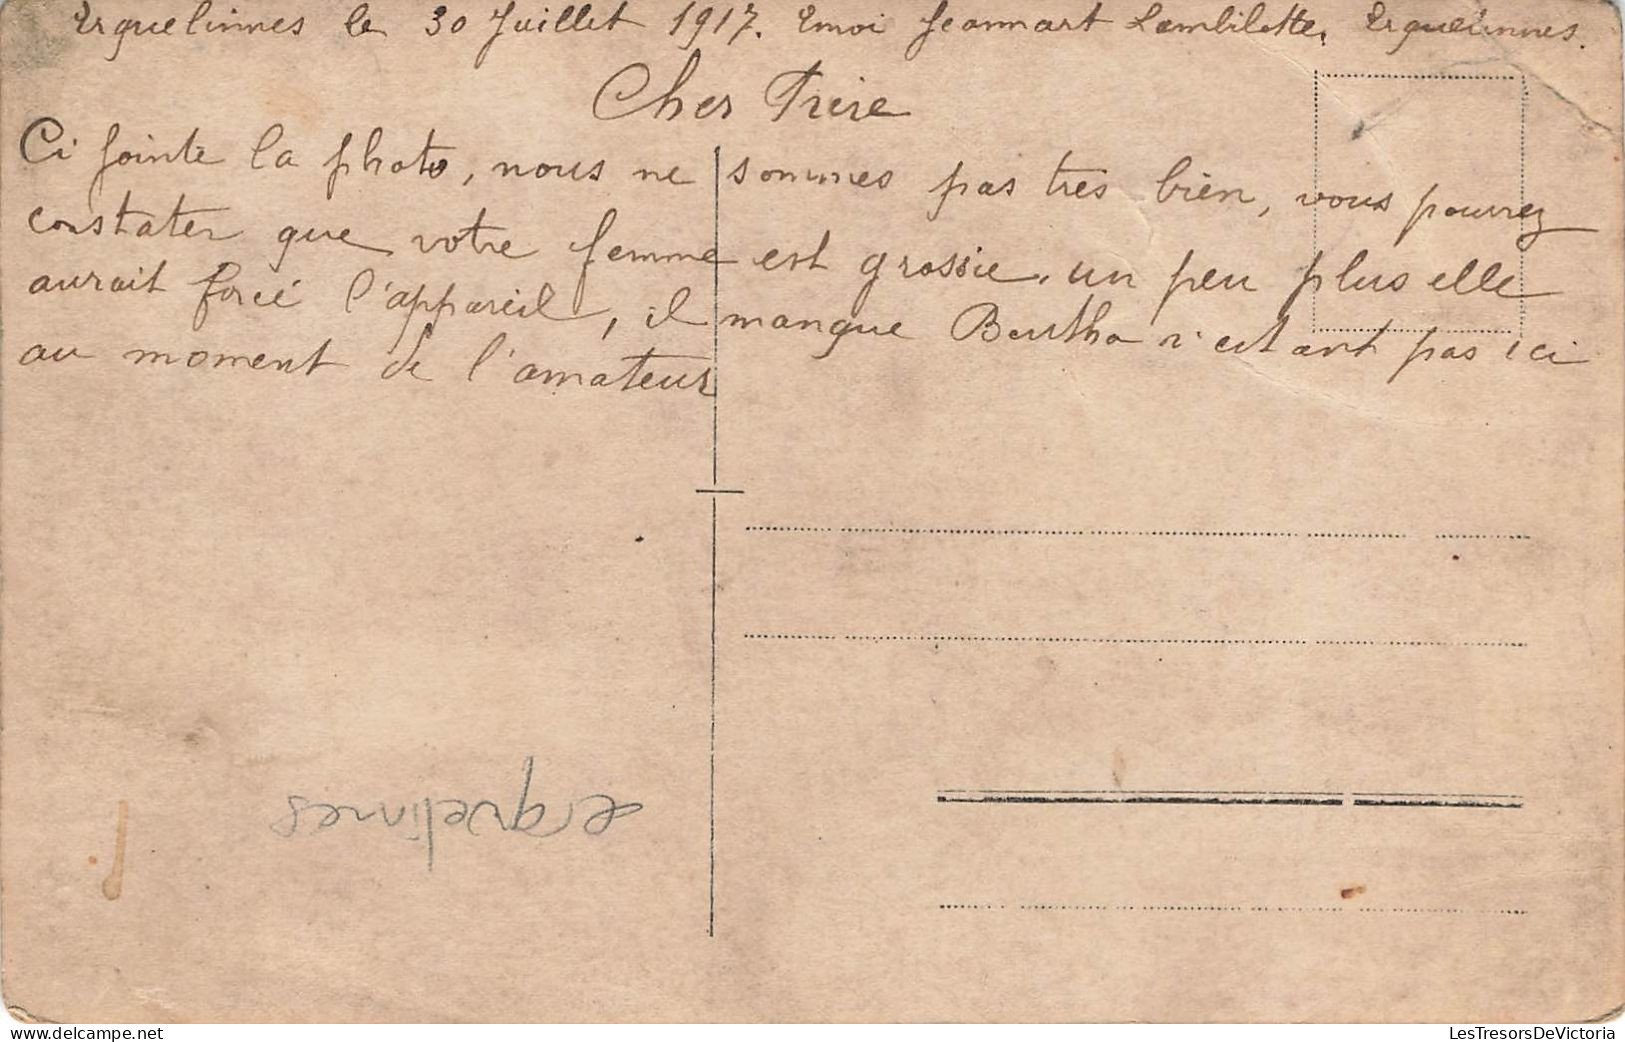 Erquelinnes le 30 Juillet 1917. Envoi Jeannart Lambilotte, Erquelinnes.
Cher Frère
Ci jointe la photo, nous ne sommes pas très bien, vous pourrez
constater que votre femme est grossie, un peu plus elle
aurait forcé l'appareil, il manque Bertha n'etant pas ici
au moment de l'amateur
erquelinnes
LesTresorsDeVictoria
www.delcampe.net